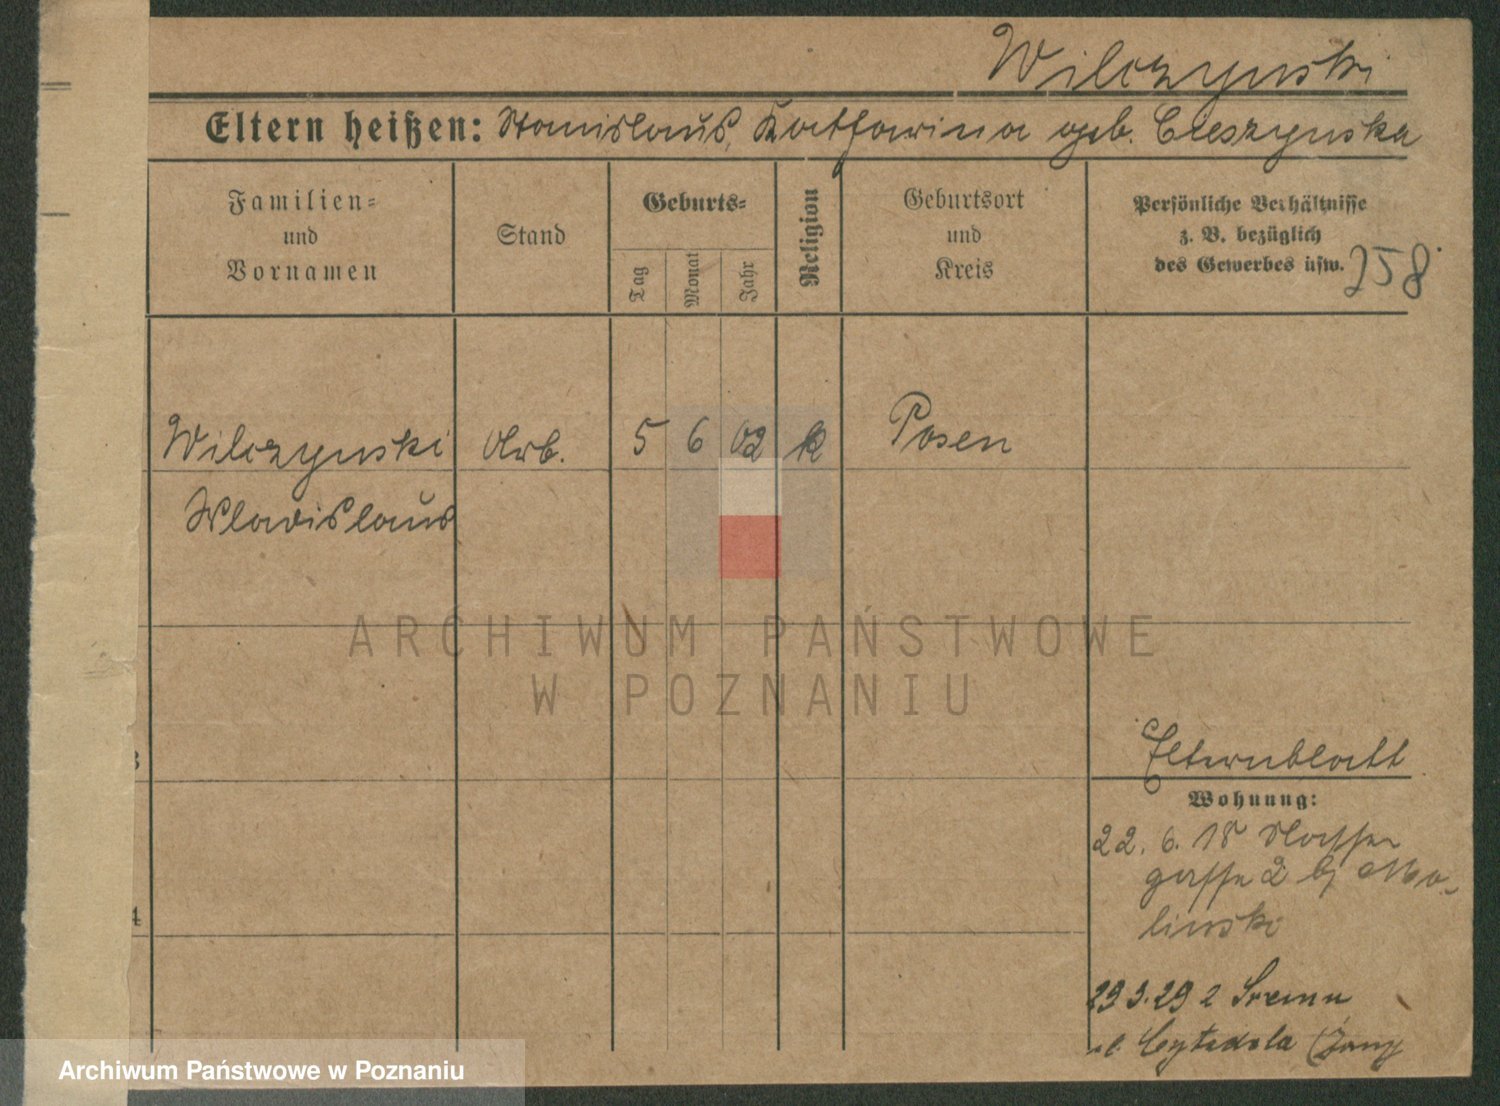 Wilczynski
Eltern heißen: Stanislaus, Katharina geb. Cieszynska
Familien= und Vornamen
Stand
Geburts=
Tag
Monat
Jahr
Religion
Geburtsort und Kreis
Persönliche Verhältnisse
z. B. bezüglich
des Gewerbes usw.
258
Wilczynski Arb. 5 6 02 k Posen
Wladislaus
ARCHIWUM PAŃSTWOWE
W POZNANIU
3
Elternblatt
Wohnung:
22. 6. 18
gasse 2 bj Ma-
linski
4
29 3. 29 z Śremu
Cytadela
Archiwum Państwowe w Poznaniu